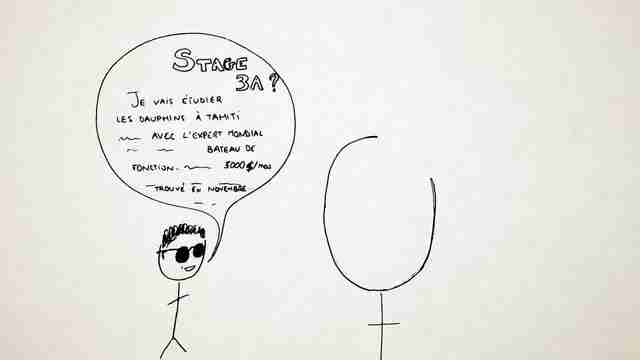 STAGE
3A?
JE VAIS ÉTUDIER
LES DAUPHINS À TAHITI
AVEC L'EXPERT MONDIAL
BATEAU DE
FONCTION. 3000 $/mois
TROUVÉ EN NOVEMBRE